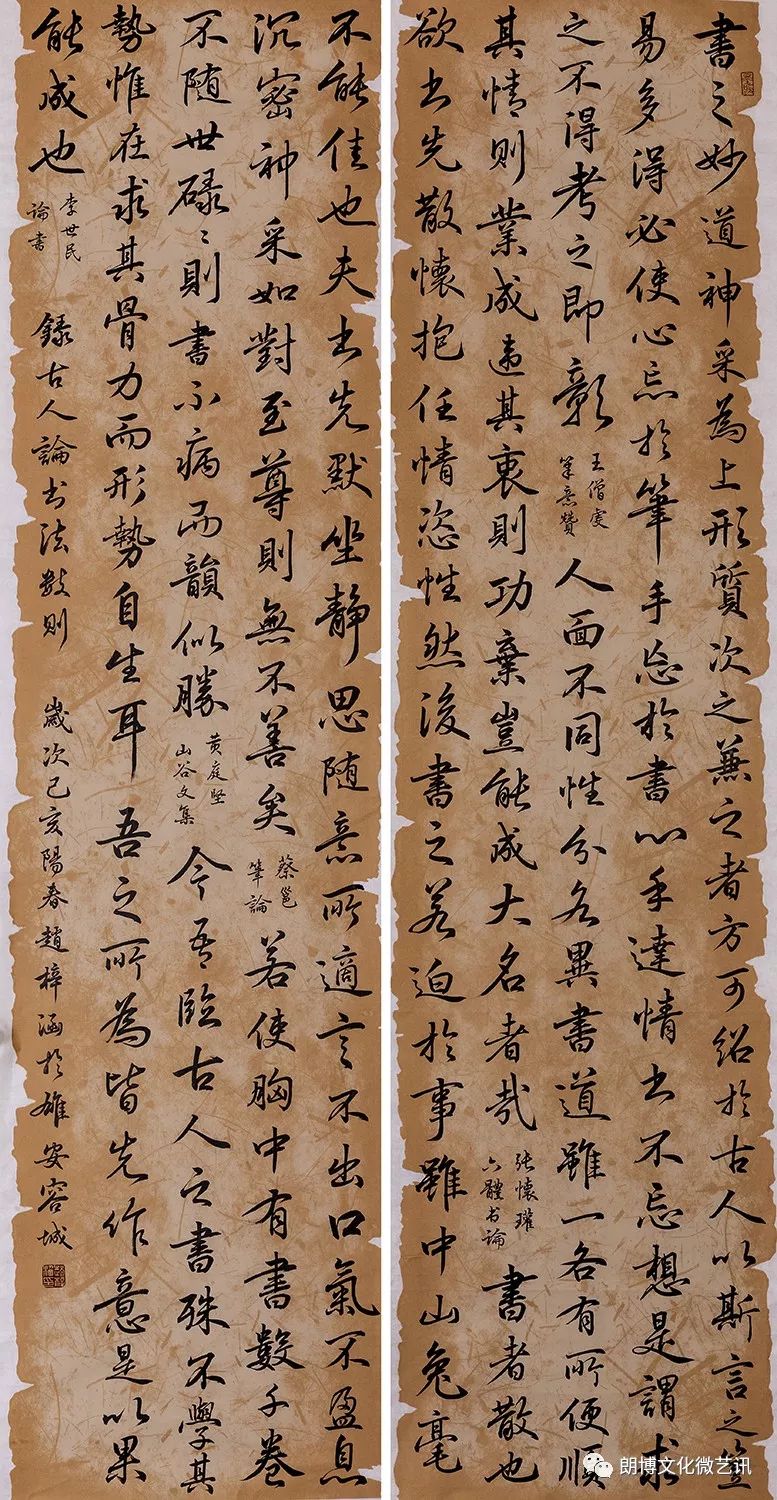 書之妙道神采為上形質次之兼之者方可紹於古人以斯言之豈
易多得必使心忘於筆手忘於書心手達情書不忘想是謂求
之不得考之即彰 王僧虔筆意贊 人面不同性分各異書道雖一各有所便順
其情則業成違其衷則功棄豈能成大名者哉 张懷瓘六體书論 書者散也
欲书先散懷抱任情恣性然後書之若迫於事雖中山兔毫
不能佳也夫书先默坐静思随意所適言不出口氣不盈息
沉密神采如對至尊則無不善矣 蔡邕筆論 若使胸中有書數千卷
不随世碌々則書不病而韻似勝 黄庭堅山谷文集 今吾臨古人之書殊不學其
勢惟在求其骨力而形勢自生耳 吾之所為皆先作意是以果
能成也 李世民論書 錄古人論书法數則 歲次己亥陽春趙梓涵於雄安容城
朗博文化微艺讯